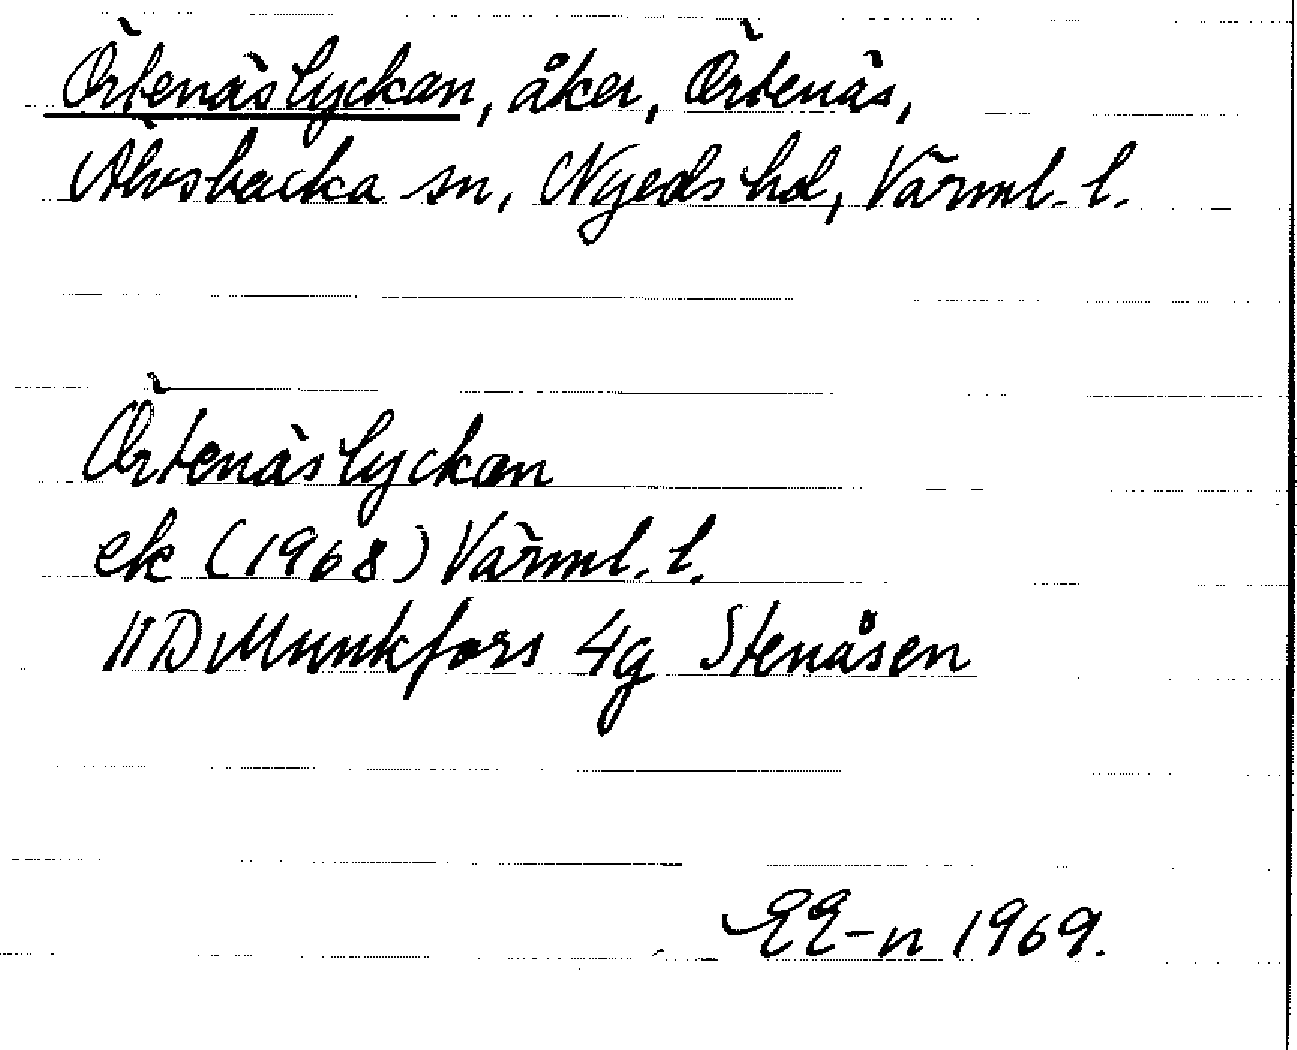 Örtenäslyckan, åker, Örtenäs,
Älvsbacka sn, Nyeds hd, Värml. l.
Örtenäslyckan
ek (1968) Värml. l.
11D Munkfors 4g Stenåsen
EE-n 1969.